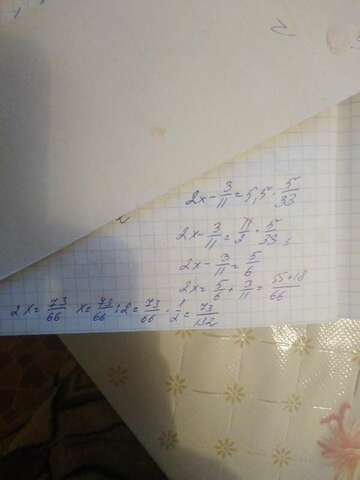 2x - 3/11 = 5,5 · 5/33
2x - 3/11 = 11/2 · 5/33
2x - 3/11 = 5/6
2x = 5/6 + 3/11 = 55+18/66
2x = 73/66 x = 73/66 : 2 = 73/66 · 1/2 = 73/132